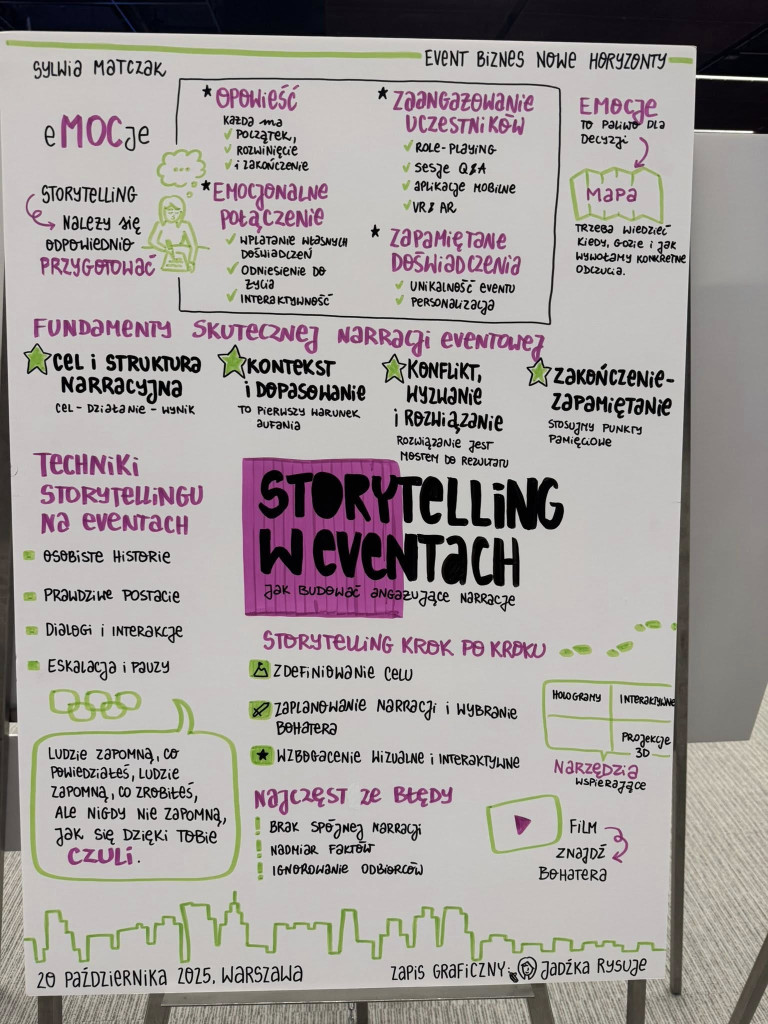 SYLWIA MATCZAK
EVENT BIZNES NOWE HORYZONTY
eMOCje
STORYTELLING
NALEŻY SIĘ
ODPOWIEDNIO
PRZYGOTOWAĆ
OPOWIEŚĆ
KAŻDA MA
POCZĄTEK,
ROZWINIĘCIE
i ZAKOŃCZENIE
EMOCJONALNE
POŁĄCZENIE
WPLATANIE WŁASNYCH
DOŚWIADCZEŃ
ODNIESIENIE DO
ŻYCIA
INTERAKTYWNOŚĆ
ZAANGAŻOWANIE
UCZESTNIKÓW
ROLE-PLAYING
SESJE Q&A
APLIKACJE MOBILNE
VR & AR
ZAPAMIĘTANE
DOŚWIADCZENIA
UNIKALNOŚĆ EVENTU
PERSONALIZACJA
EMOCJE
TO PALIWO DLA
DECYZJI
MAPA
TRZEBA WIEDZIEĆ
KIEDY, GDZIE i JAK
WYWOŁAMY KONKRETNE
ODCZUCIA.
FUNDAMENTY SKUTECZNEJ NARRACJI EVENTOWEJ
CEL i STRUKTURA
NARRACYJNA
CEL - DZIAŁANIE - WYNIK
KONTEKST
i DOPASOWANIE
TO PIERWSZY WARUNEK
AUFANIA
KONFLIKT,
WYZWANIE
i ROZWIĄZANIE
ROZWIĄZANIE JEST
MOSTEM DO REZULTATU
ZAKOŃCZENIE-
ZAPAMIĘTANIE
STOSUJMY PUNKTY
PAMIĘCIOWE
TECHNIKI
STORYTELLINGU
NA EVENTACH
OSOBISTE HISTORIE
PRAWDZIWE POSTACIE
DIALOGI i INTERAKCJE
ESKALACJA i PAUZY
STORYTELLING
W EVENTACH
JAK BUDOWAĆ ANGAŻUJĄCE NARRACJE
STORYTELLING KROK PO KROKU
ZDEFINIOWANIE CELU
ZAPLANOWANIE NARRACJI i WYBRANIE
BOHATERA
WZBOGACENIE WIZUALNE i INTERAKTYWNE
HOLOGRAMY
INTERAKTYWNE
PROJEKCJE
3D
NARZĘDZIA
WSPIERAJĄCE
LUDZIE ZAPOMNĄ, CO
POWIEDZIAŁEŚ, LUDZIE
ZAPOMNĄ, CO ZROBIŁEŚ,
ALE NIGDY NIE ZAPOMNĄ,
JAK SIĘ DZIĘKI TOBIE
CZULI.
NAJCZĘSTSZE BŁĘDY
BRAK SPÓJNEJ NARRACJI
NADMIAR FAKTÓW
IGNOROWANIE ODBIORCÓW
FILM
ZNAJDŹ
BOHATERA
20 PAŹDZIERNIKA 2025, WARSZAWA
ZAPIS GRAFICZNY: JADŹKA RYSUJE